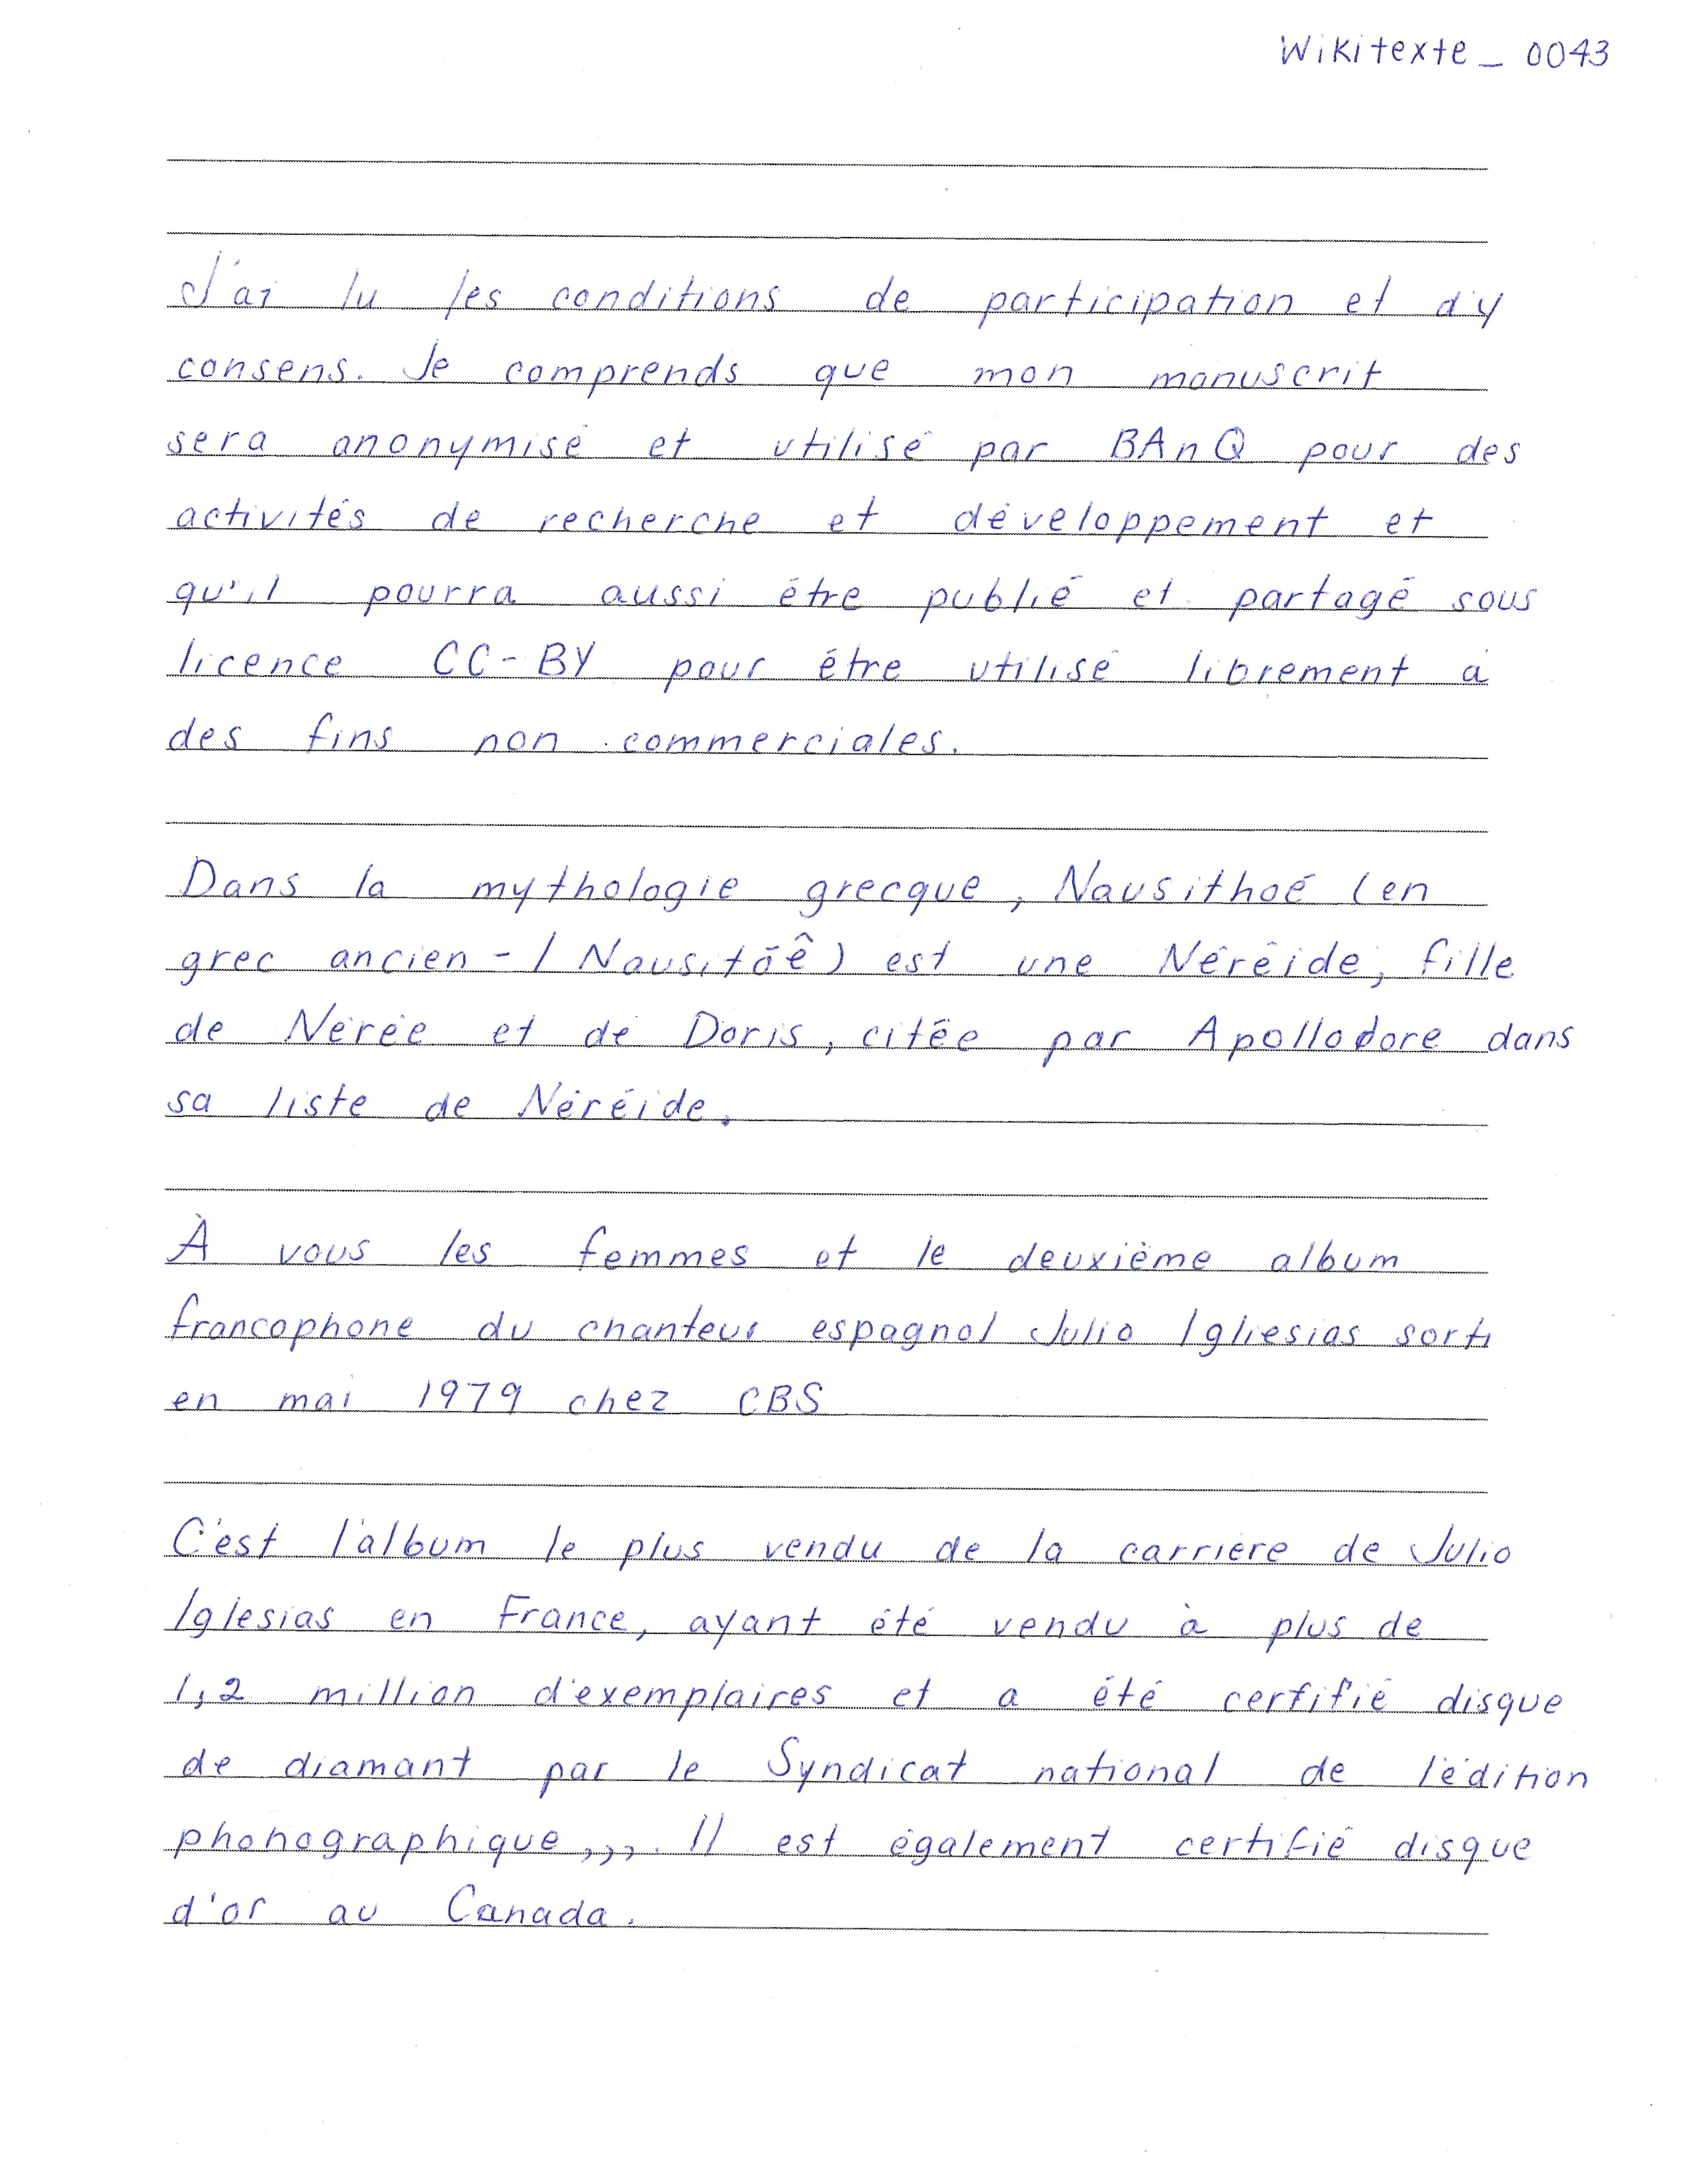 Wikitexte_0043
J'ai lu les conditions de participation et d'y
consens. Je comprends que mon manuscrit
sera anonymisé et utilisé par BAnQ pour des
activités de recherche et développement et
qu'il pourra aussi être publié et partagé sous
licence CC-BY pour être utilisé librement à
des fins non commerciales.
Dans la mythologie grecque, Nausithoé (en
grec ancien - / Nausitóê) est une Néréide, fille
de Nérée et de Doris, citée par Apollodore dans
sa liste de Néréide.
À vous les femmes et le deuxième album
francophone du chanteur espagnol Julio Igliesias sorti
en mai 1979 chez CBS
C'est l'album le plus vendu de la carrière de Julio
Iglesias en France, ayant été vendu à plus de
1,2 million d'exemplaires et a été certifié disque
de diamant par le Syndicat national de l'édition
phonographique,,,. Il est également certifié disque
d'or au Canada.